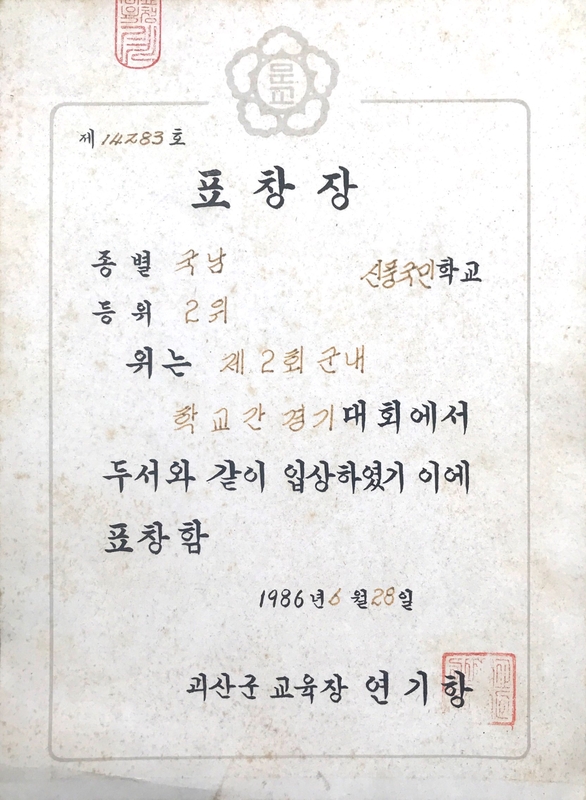 문교
제 14283 호
표창장
종별 국남
신풍국민학교
등위 2위
위는 제2회 군내
학교간 경기대회에서
두서와 같이 입상하였기 이에
표창함
1986년 6월 28일
괴산군 교육장 연기항